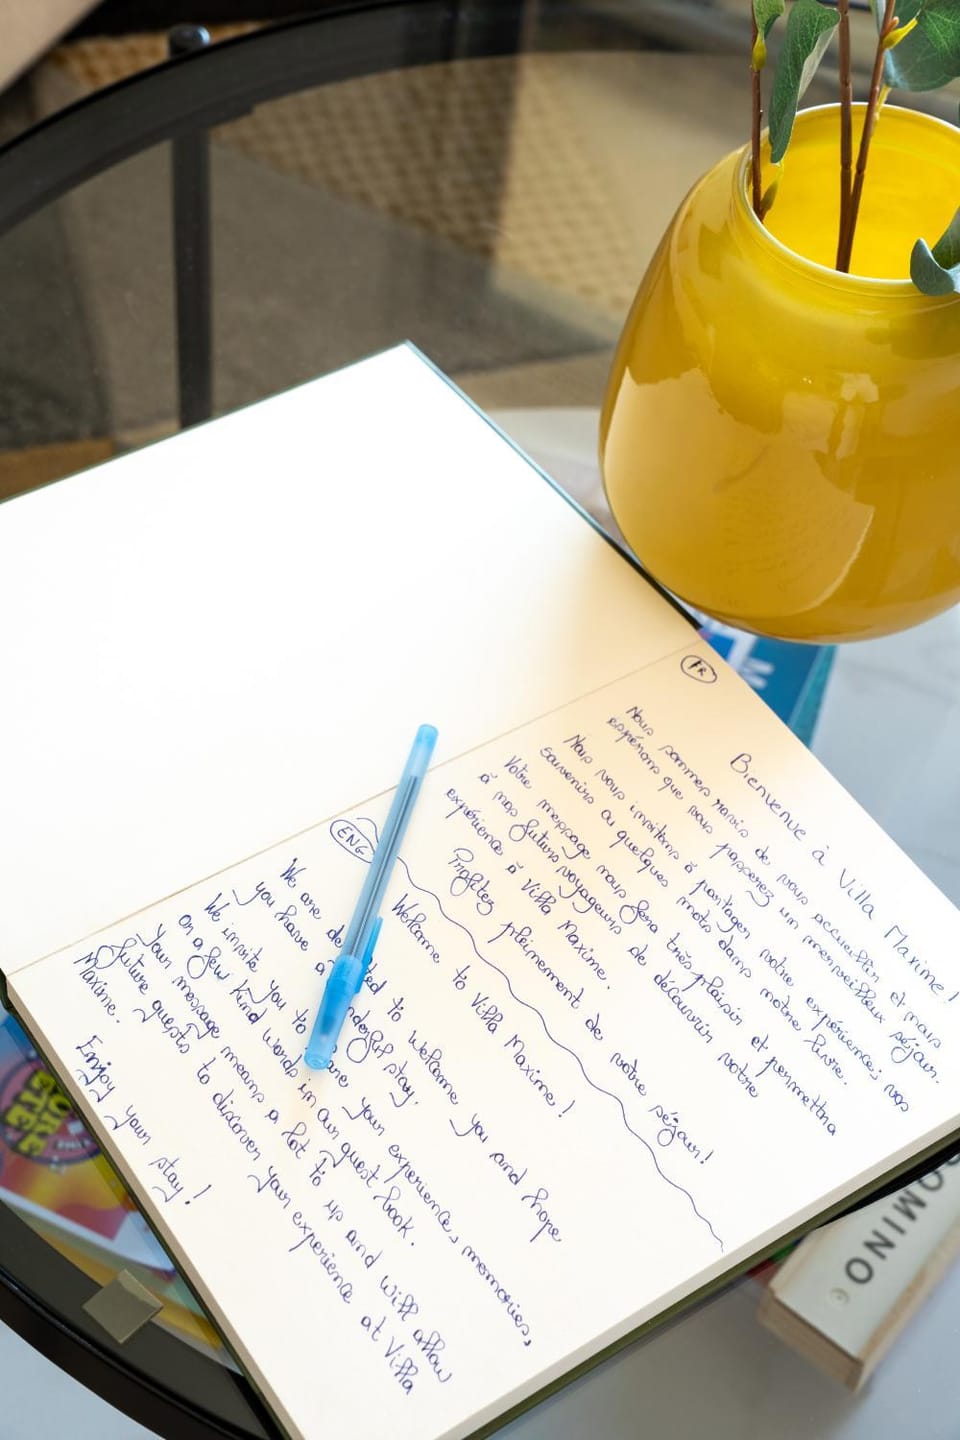 FR
Bienvenue à Villa Maxime!
Nous sommes ravis de vous accueillir et mais
espérons que vous passerez un merveilleux séjour.
Nous vous invitons à partager votre expérience, vos
souvenirs ou quelques mots dans notre livre.
Votre message nous fera très plaisir et permettra
à nos futurs voyageurs de découvrir votre
expérience à Villa Maxime.
Profitez pleinement de votre séjour!
ENG
Welcome to Villa Maxime!
We are ted to welcome you and hope
you have a nderful stay.
We invite you to are your experience, memories,
on a few kind words in our guest book.
Your message means a lot to us and will allow
future guests to discover your experience at Villa
Maxime.
Enjoy your stay!
OMINO